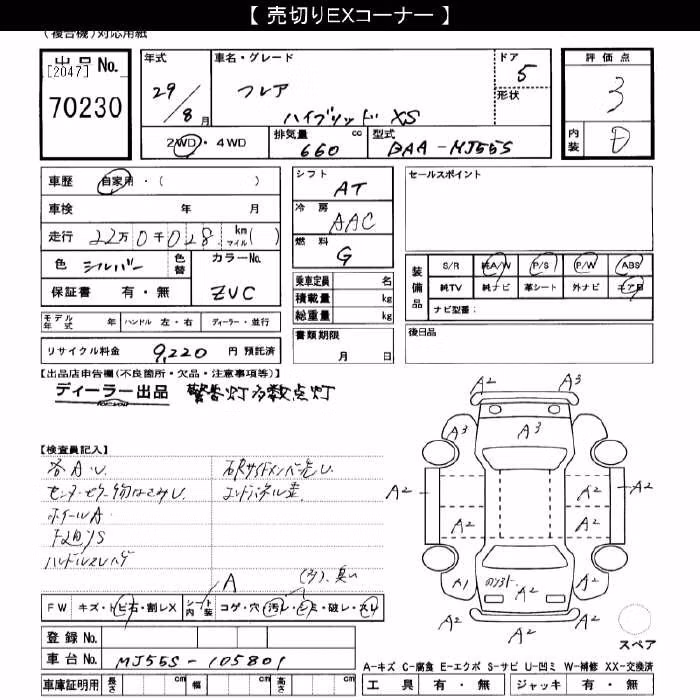 【 売切りEXコーナー 】
(複合機)対応用紙
出品 No. [2047]
70230
年式 29 / 8月
車名・グレード フレア ハイブリッド XS
ドア 5
形状
評価点 3
内装 D
2WD・4WD
排気量 660 cc
型式 DAA-MJ55S
車歴 自家用・( )
車検 年 月
走行 22万0千028 km マイル( )
色 シルバー 色替 カラーNo. ZVC
保証書 有・無
モデル年式 年 ハンドル 左・右 ディーラー・並行
リサイクル料金 9,220 円 預託済
シフト AT
冷房 AAC
燃料 G
乗車定員 名
積載量 kg
総重量 kg
書類期限 月 日
セールスポイント
装備品 S/R 純A/W P/S P/W ABS
純TV 純ナビ 革シート 外ナビ エアB
ナビ型番:
後日品
【出品店申告欄(不良箇所・欠品・注意事項等)】
ディーラー出品 警告灯多数点灯
【検査員記入】
各A・U
ホイールA
ハンドルスレハゲ
A
FW キズ・トビ石・割レX シート内装 コゲ・穴・汚レ・シミ・破レ・スレ
登録 No.
車台 No. MJ55S-105801
車庫証明用 長さ cm 幅 cm 高さ cm
A2 A3
A3 A3
A2 A2 A2
A2 A2
A1 A2 A2
A2 A2
スペア
A-キズ C-腐食 E-エクボ S-サビ U-凹ミ W-補修 XX-交換済
工具 有・無 ジャッキ 有・無